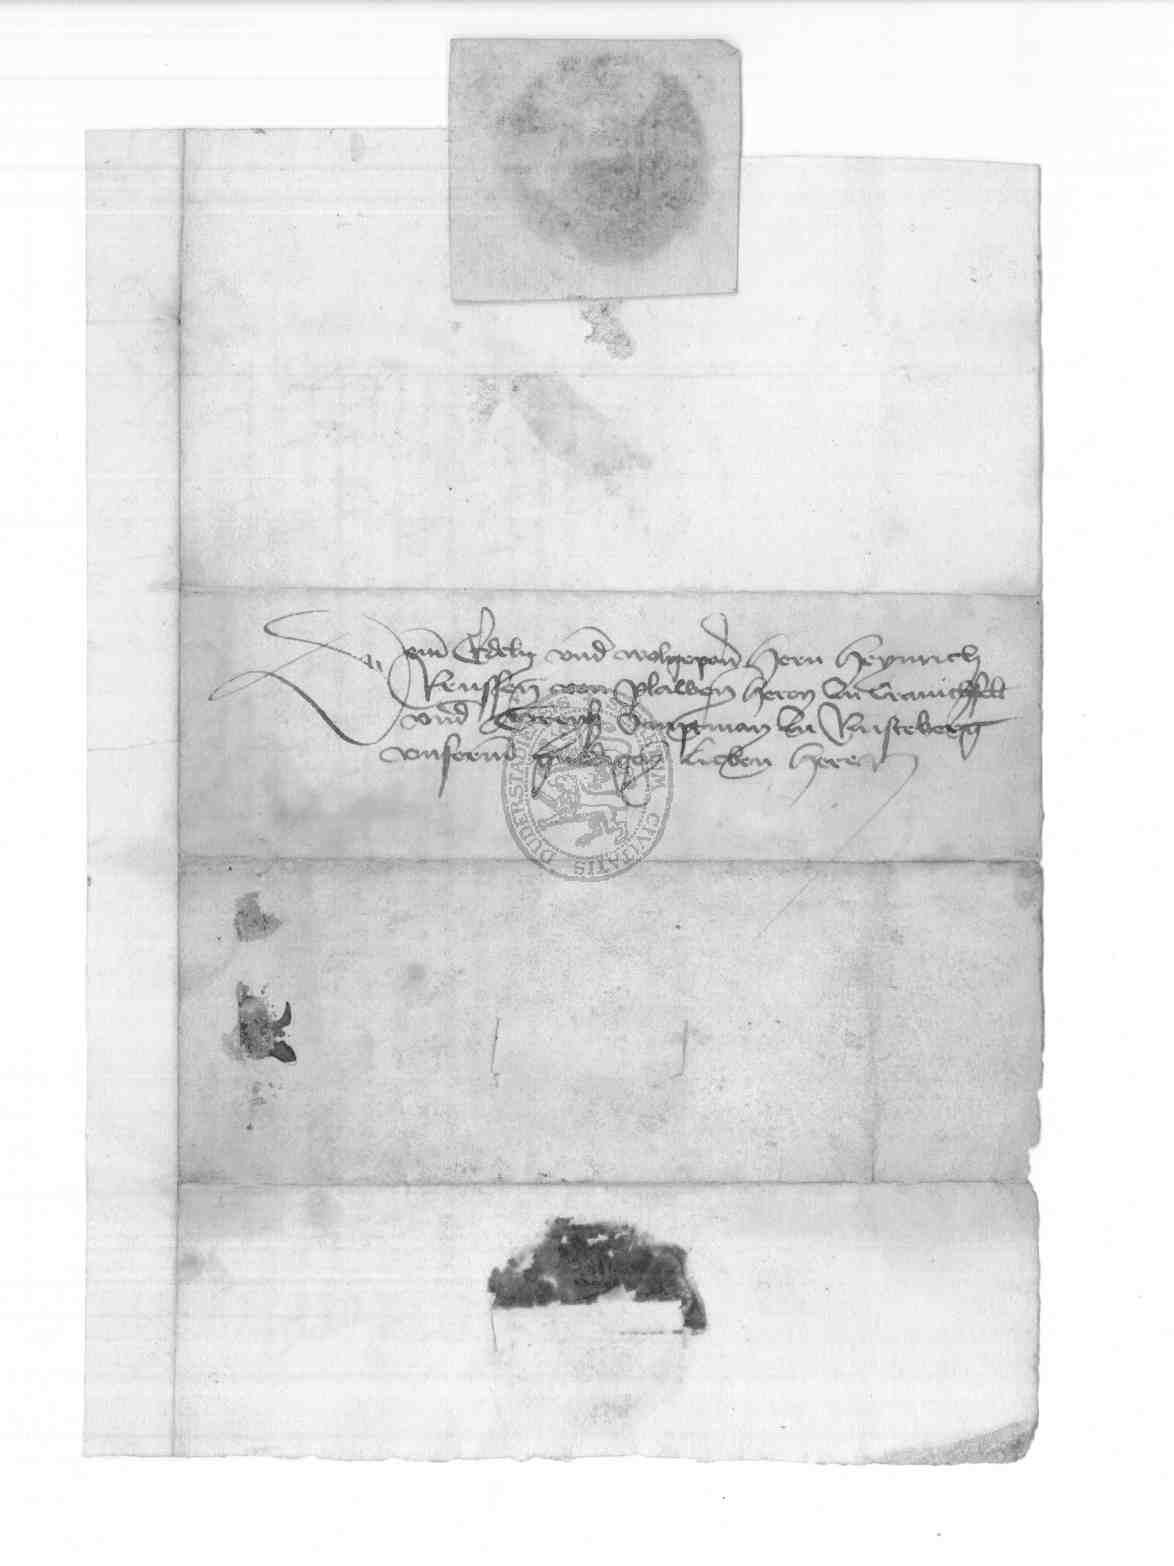 Dem Edeln vnd wolgeporn hern Heynrich
Reussen von plawen hern zu Cranichfelt
vnd Houptman zu Rusteberg
vnserm gnedigen lieben heren
DUDERSTA CIVITATIS